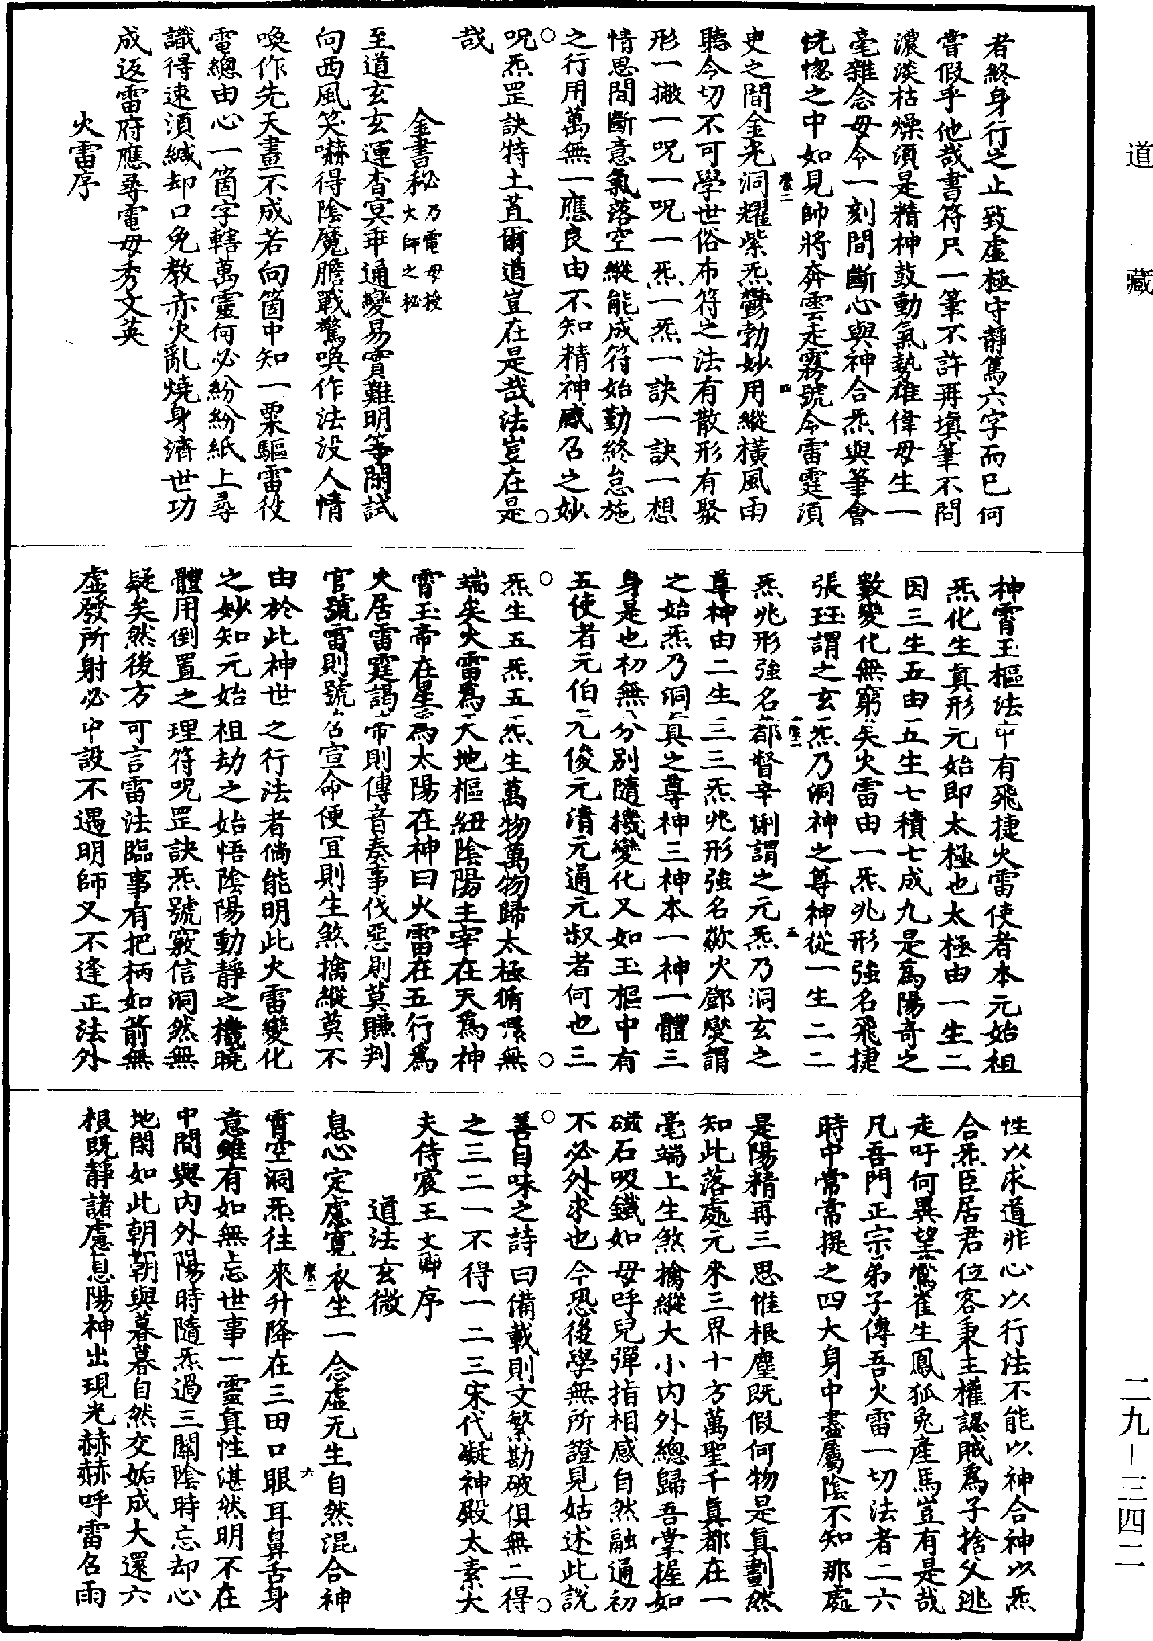 道藏
二九–三四二
者終身行之止致虛極守靜篤六字而巳何
嘗假乎他哉書符只一筆不許再填筆不問
濃淡枯燥須是精神鼓動氣勢雄偉毋生一
毫雜念毋令一刻間斷心與神合炁與筆會
恍惚之中如見帥將奔雲走霧號令雷霆須
史之間金光洞耀紫炁鬱勃妙用縱橫風雨
聽令切不可學世俗布符之法有散形有聚
形一撇一呪一呪一炁一炁一訣一訣一想
情思間斷意氣落空縱能成符始勤終怠施
之行用萬無一應良由不知精神感召之妙
呪炁罡訣特土苴爾道豈在是哉法豈在是
哉
金書秘乃電母授火師之秘
至道玄玄運杳冥乖通變易實難明等閑試
向西風笑嚇得陰魔膽戰驚喚作法沒人情
喚作先天畫不成若向箇中知一粟驅雷役
電總由心一箇字轄萬靈何必紛紛紙上尋
識得速須緘却口免教亦火亂燒身濟世功
成返雷府應尋電母秀文英
火雷序
神霄玉樞法中有飛捷火雷使者本元始祖
炁化生真形元始即太極也太極由一生二
因三生五由五生七積七成九是為陽奇之
數變化無窮矣火雷由一炁兆形強名飛捷
張珏謂之玄炁乃洞神之尊神從一生二二
炁兆形強名都督辛㓨謂之元炁乃洞玄之
尊神由二生三三炁兆形強名欻火鄧燮謂
之始炁乃洞真之尊神三神本一神一體三
身是也初無分別隨機變化又如玉樞中有
五使者元伯元俊元清元通元叔者何也三
炁生五炁五炁生萬物萬物歸太極循環無
端矣火雷為天地樞紐陰陽主宰在天為神
霄玉帝在星為太陽在神曰火雷在五行為
火居雷霆謁帝則傳音奏事伐惡則莫賺判
官號雷則號召宣命便宜則生煞擒縱莫不
由於此神世之行法者倘能明此火雷變化
之妙知元始祖劫之始悟陰陽動靜之機曉
體用倒置之理符呪罡訣炁號竅信洞然無
疑矣然後方可言雷法臨事有把柄如箭無
虛發所射必中設不遇明師又不逢正法外
性以求道非心以行法不能以神合神以炁
合炁臣居君位客秉主權認賊為子捨父逃
走吁何異望鶯雀生鳳狐兔產馬豈有是哉
凡吾門正宗弟子傳吾火雷一切法者二六
時中常常提之四大身中盡屬陰不知那處
是陽精再三思惟根塵既假何物是真劃然
知此落處元來三界十方萬聖千真都在一
毫端上生煞擒縱大小內外總歸吾掌握如
磁石吸鐵如母呼兒彈指相感自然融通初
不必外求也今恐後學無所證見姑述此說
善自味之詩曰備載則文繁勘破俱無二得
之三二一不得一二三宋代凝神殿太素大
夫侍宸王文卿序
道法玄微
息心定慮寬衣坐一念虛无生自然混合神
霄空洞炁往來升降在三田口眼耳鼻舌身
意雖有如無忘世事一靈真性湛然明不在
中間與內外陽時隨炁過三關陰時忘却心
地閑如此朝朝與暮暮自然交姤成大還六
根既靜諸慮息陽神出現光赫赫呼雷召雨